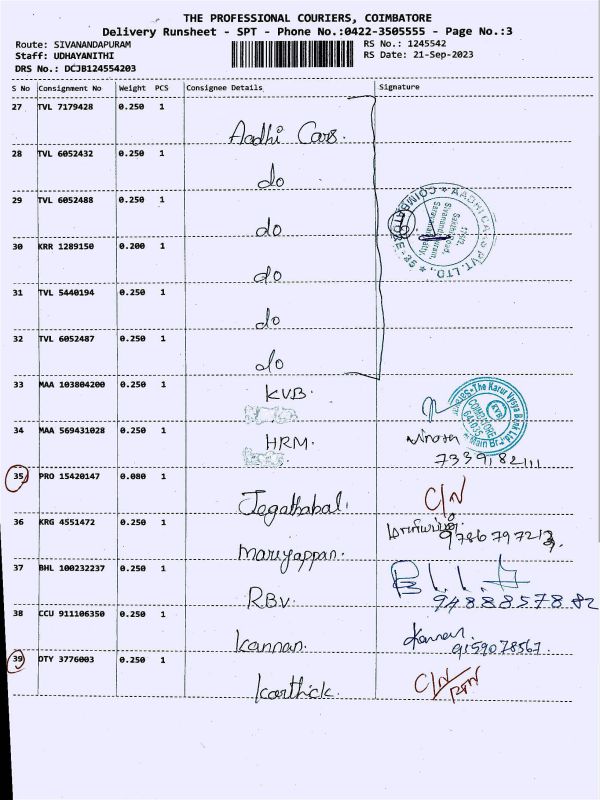 THE PROFESSIONAL COURIERS, COIMBATORE
Delivery Runsheet - SPT - Phone No.:0422-3505555 - Page No.:3
Route: SIVANANDAPURAM RS No.: 1245542
Staff: UDHAYANITHI RS Date: 21-Sep-2023
DRS No.: DCJB124554203
S No Consignment No Weight PCS Consignee Details Signature
27 TVL 7179428 0.250 1
Aadhi Cars.
28 TVL 6052432 0.250 1
do
29 TVL 6052488 0.250 1
do
AADHICARS PVT.LTD., COIMBATORE-35
30 KRR 1289150 0.200 1
do
31 TVL 5440194 0.250 1
do
32 TVL 6052487 0.250 1
do
33 MAA 103804200 0.250 1
KVB.
The Karur Vysya Bank Ltd.
KVB
COIMBATORE
641035
Main Br.
34 MAA 569431028 0.250 1
HRM.
7339182111
35 PRO 15420147 0.080 1
Jegathabal. C/N
36 KRG 4551472 0.250 1
Mariyappan. மாரியப்பன் 9786797213.
37 BHL 100232237 0.250 1
RBV 9488857882
38 CCU 911106350 0.250 1
Kannan. Kannan.
9159078567.
39 DTY 3776003 0.250 1
Karthick. C/N